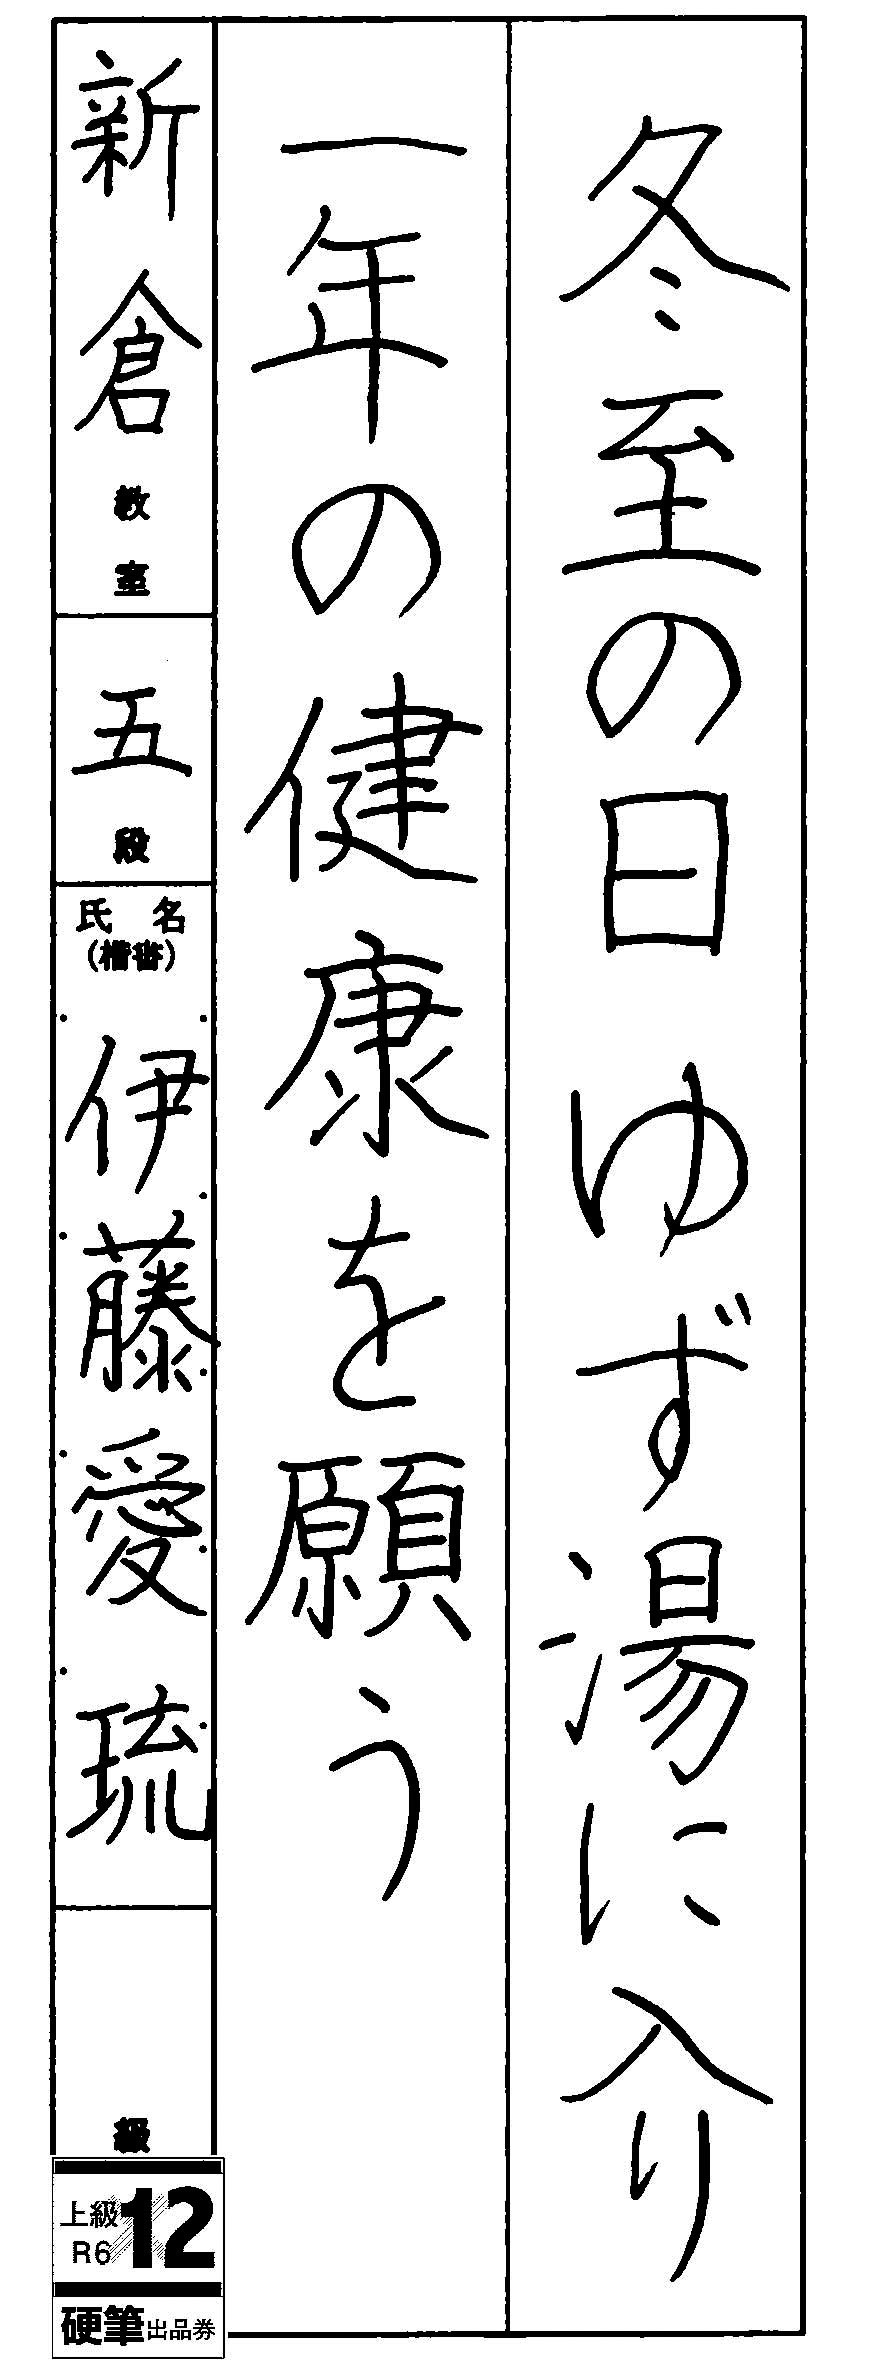 冬至の日ゆず湯に入り
一年の健康を願う
新倉教室
五段
氏名
(楷書)
伊藤愛琉
級
上級
R6
12
硬筆出品券